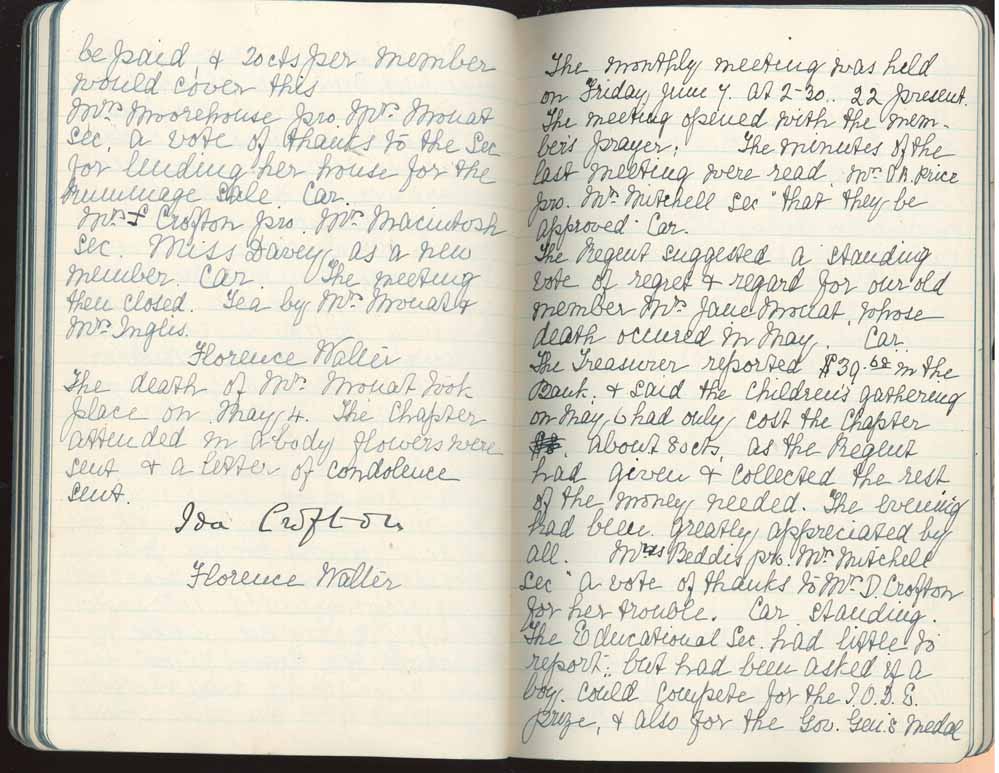 be paid, & 20cts per member
would cover this
Mrs Moorehouse pro. Mrs Mouat
sec. a vote of thanks to the Sec
for lending her house for the
rummage sale. Car.
Mrs F Crofton pro. Mrs Macintosh
sec. Miss Davey as a new
member. Car. The meeting
then closed. Tea by Mrs Mouat &
Mrs Inglis.
Florence Walter
The death of Mrs Mouat took
place on May 4. The Chapter
attended in a body flowers were
sent & a letter of condolence
sent.
Ida Crofton
Florence Walter
The monthly meeting was held
on Friday June 7. at 2-30.. 22 present.
The meeting opened with the mem-
bers prayer. The minutes of the
last meeting were read. Mrs Price
pro. Mrs Mitchell sec "that they be
approved" Car.
The Regent suggested a standing
vote of regret & regard for our old
member Mrs Jane Mouat, whose
death occured in May. Car.
The Treasurer reported $39.68 in the
Bank. & said the Children's gathering
on May 6 had only cost the Chapter
about 80cts, as the Regent
had given & collected the rest
of the money needed. The evening
had been greatly appreciated by
all. Mrs Beddis pro. Mrs Mitchell
sec "a vote of thanks to Mrs D. Crofton
for her trouble. Car standing.
The Educational Sec. had little to
report. but had been asked if a
boy. could compete for the I.O.D.E.
prize, & also for the Gov. Gen.s medal